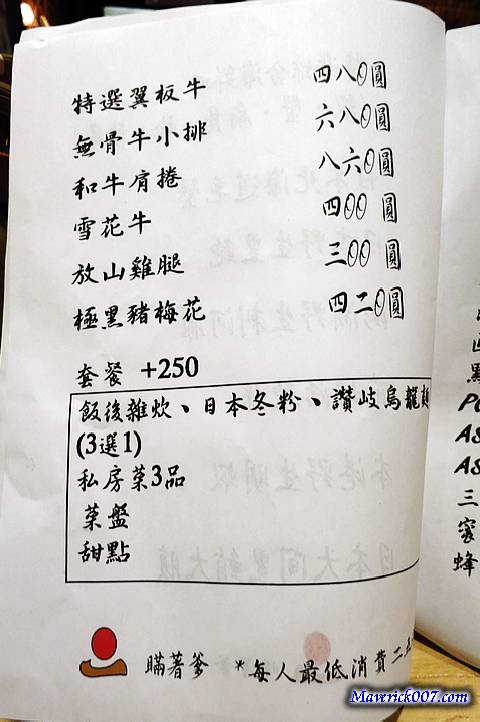 特選翼板牛 四八0圓
無骨牛小排 六八0圓
和牛肩捲 八六0圓
雪花牛 四00圓
放山雞腿 三00圓
極黑豬梅花 四二0圓
套餐 +250
飯後雜炊、日本冬粉、讚岐烏龍麵
(3選1)
私房菜3品
菜盤
甜點
瞞著爹 *每人最低消費二五
黑
PO
AS
AS
三
蜂
Mawrick007.com